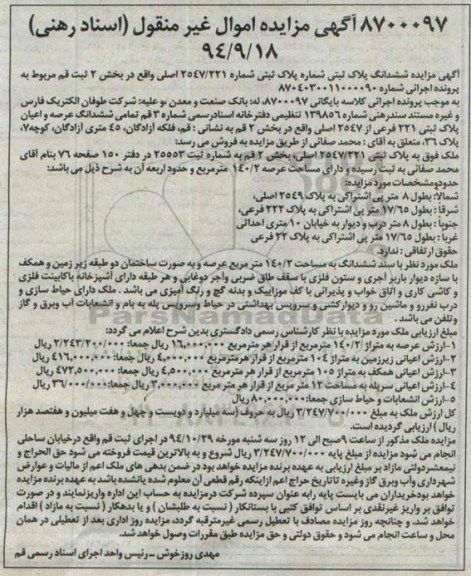 ۸۷۰۰۰۹۷ آگهی مزایده اموال غیر منقول (اسناد رهنی)
۹۴/۹/۱۸
آگهی مزایده ششدانگ پلاک ثبتی شماره پلاک ثبتی شماره ۲۵۴۷/۲۲۱ اصلی واقع در بخش ۲ ثبت قم مربوط به
پرونده اجرائی شماره ۸۷۰۴۰۳۰۰۱۱۰۰۰۰۹۰
به موجب پرونده اجرائی کلاسه بایگانی ۸۷۰۰۰۹۷، له: بانک صنعت و معدن ،و علیه: شرکت طوفان الکتریک فارس
و غیره مستند سندرهنی شماره ۱۳۹۸۵۶ تنظیمی دفترخانه اسنادرسمی شماره ۳ قم تمامی ششدانگ عرصه و اعیان
پلاک ثبتی ۲۲۱ فرعی از ۲۵۴۷ اصلی واقع در بخش ۲ قم به نشانی : قم، فلکه آزادگان، ۴۵ متری آزادگان، کوچه۷،
پلاک ۳۶، متعلق به آقای : محمد صفائی از طریق مزایده به فروش می رسد:
ملک فوق به پلاک ثبتی ۲۵۴۷/۲۲۱ اصلی، بخش ۲ قم به شماره ثبت ۲۵۵۵۳ در دفتر ۱۵۰ صفحه ۷۶ بنام آقای
محمد صفائی به ثبت رسیده و دارای مساحت عرصه ۱۴۰/۲ مترمربع و حدود اربعه آن به شرح ذیل می باشد:
حدودومشخصات مورد مزایده:
شمالا: بطول ۸ متر پی اشتراکی به پلاک ۲۵۴۹ اصلی،
شرقا : بطول ۱۷/۶۵ متر پی اشتراکی به پلاک ۲۲۲ فرعی،
جنوبا : بطول ۸ متر درب و دیوار به خیابان ۱۰ متری احداثی
غربا : بطول ۱۷/۶۵ متر پی اشتراکی به پلاک ۲۲ فرعی
حقوق ارتفاقی : ندارد.
ملک مورد نظر با سند ششدانگ به مساحت ۱۴۰/۲ متر مربع عرصه و به صورت ساختمان دو طبقه زیر زمین و همکف
با سازه دیوار باربر آجری و ستون فلزی با سقف طاق ضربی واجر دوغابی و هر طبقه دارای آشپزخانه باکابینت فلزی
و کاشی کاری و اتاق خواب و پذیرائی با کف موزاییک و بدنه گچ و رنگ آمیزی می باشد . ملک دارای حیاط سازی و
درب نفررو و ماشین رو و دیوارکشی و سرویس بهداشتی در حیاط وسرویس پله به بام و انشعابات آب وبرق و گاز
و تلفن می باشد .
مبلغ ارزیابی ملک مورد مزایده با نظر کارشناس رسمی دادگستری بدین شرح اعلام می گردد:
۱-ارزش عرصه به متراژ ۱۴۰/۲ مترمربع از قرار هر مترمربع ۱۶,۰۰۰,۰۰۰ ریال جمعا: ۲/۲۴۳/۲۰۰/۰۰۰ ریال
۲-ارزش اعیانی زیرزمین به متراژ ۱۰۴ مترمربع از قرار هرمترمربع ۴,۰۰۰,۰۰۰ ریال جمعا: ۴۱۶,۰۰۰,۰۰۰ ریال
۳-ارزش اعیانی همکف به متراژ ۱۰۵ مترمربع از قرار هر مترمربع ۴,۵۰۰,۰۰۰ ریال جمعا: ۴۷۲,۵۰۰,۰۰۰ ریال
۴-ارزش اعیانی سرپله به مساحت ۱۲ متر مربع از قرار هر متر مربع ۳,۰۰۰,۰۰۰ ریال جمعا: ۳۶/۰۰۰/۰۰۰ ریال
۵-ارزش انشعابات و حیاط سازی جمعا: ۸۰,۰۰۰,۰۰۰ ریال
کل ارزش ملک به مبلغ ۳/۲۴۷/۷۰۰/۰۰۰ ریال به حروف (سه میلیارد و دویست و چهل و هفت میلیون و هفتصد هزار
ریال ) ارزیابی گردیده است.
مزایده ملک مذکور از ساعت ۹صبح الی ۱۲ روز سه شنبه مورخه ۹۴/۱۰/۲۹ در اجرای ثبت قم واقع درخیابان ساحلی
انجام می شود مزایده از مبلغ پایه ۳/۲۴۷/۷۰۰/۰۰۰ ریال شروع و به بالاترین قیمت فروخته می شود حق الحراج و
نیمعشردولتی مازاد بر مبلغ ارزیابی به عهده برنده مزایده خواهد بود در ضمن بدهی های ملک اعم از مالیات و عوارض
شهرداری وآب وبرق گاز وغیره تاتاریخ حراج اعم ازاینکه رقم قطعی آن معلوم شده یانشده باشد به عهده برنده مزایده
خواهد بودخریداران می بایست پایه رابه عنوان سپرده شرکت درمزایده به حساب این اداره واریزنمایند و در صورت
توافق بر واریز غیرنقدی بر اساس توافق کتبی با بستانکار ( نسبت به طلبشان ) و یا بدهکار ( نسبت به مازاد ) اقدام
خواهد شد. و چنانچه روز مزایده مصادف با تعطیل رسمی غیرمترقبه گردد، مزایده روز اداری بعد از تعطیلی در همان
محل و ساعت انجام می شود و حقوق دولتی و حق مزایده طبق مقررات وصول خواهد شد.
مهدی روزخوش – رئیس واحد اجرای اسناد رسمی قم
ParsNamadData